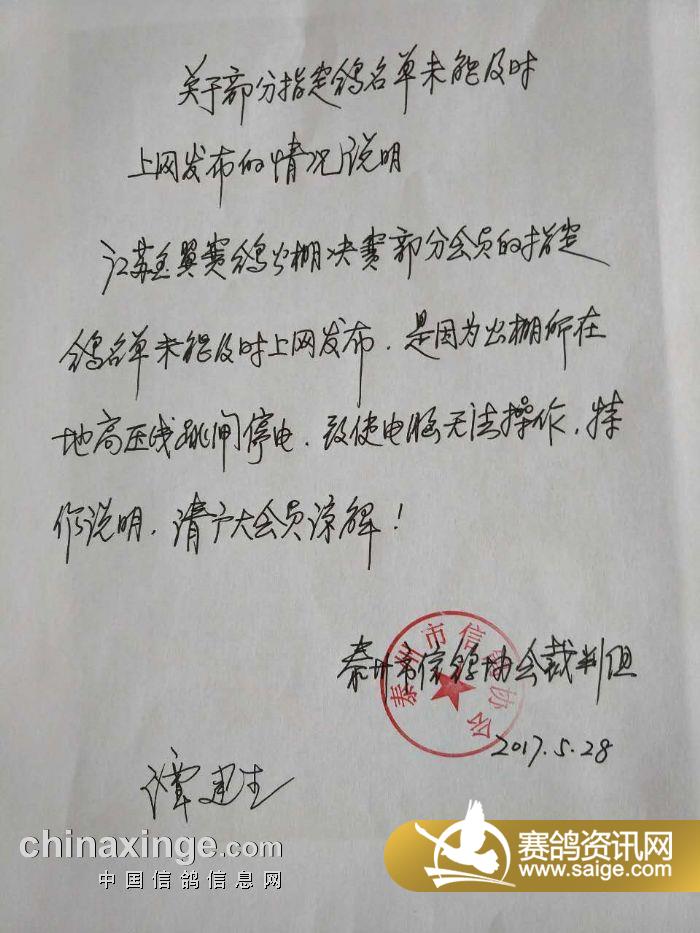 关于部分指定鸽名单未能及时
上网发布的情况说明
江苏金翼赛鸽公棚决赛部分会员的指定
鸽名单未能及时上网发布，是因为公棚所在
地高压线跳闸停电，致使电脑无法操作，特
作说明，请广大会员谅解！
泰州市信鸽协会裁判组
泰州市信鸽协会
2017.5.28
谭建生
chinaxinge.com
中国信鸽信息网
赛鸽资讯网
www.saige.com